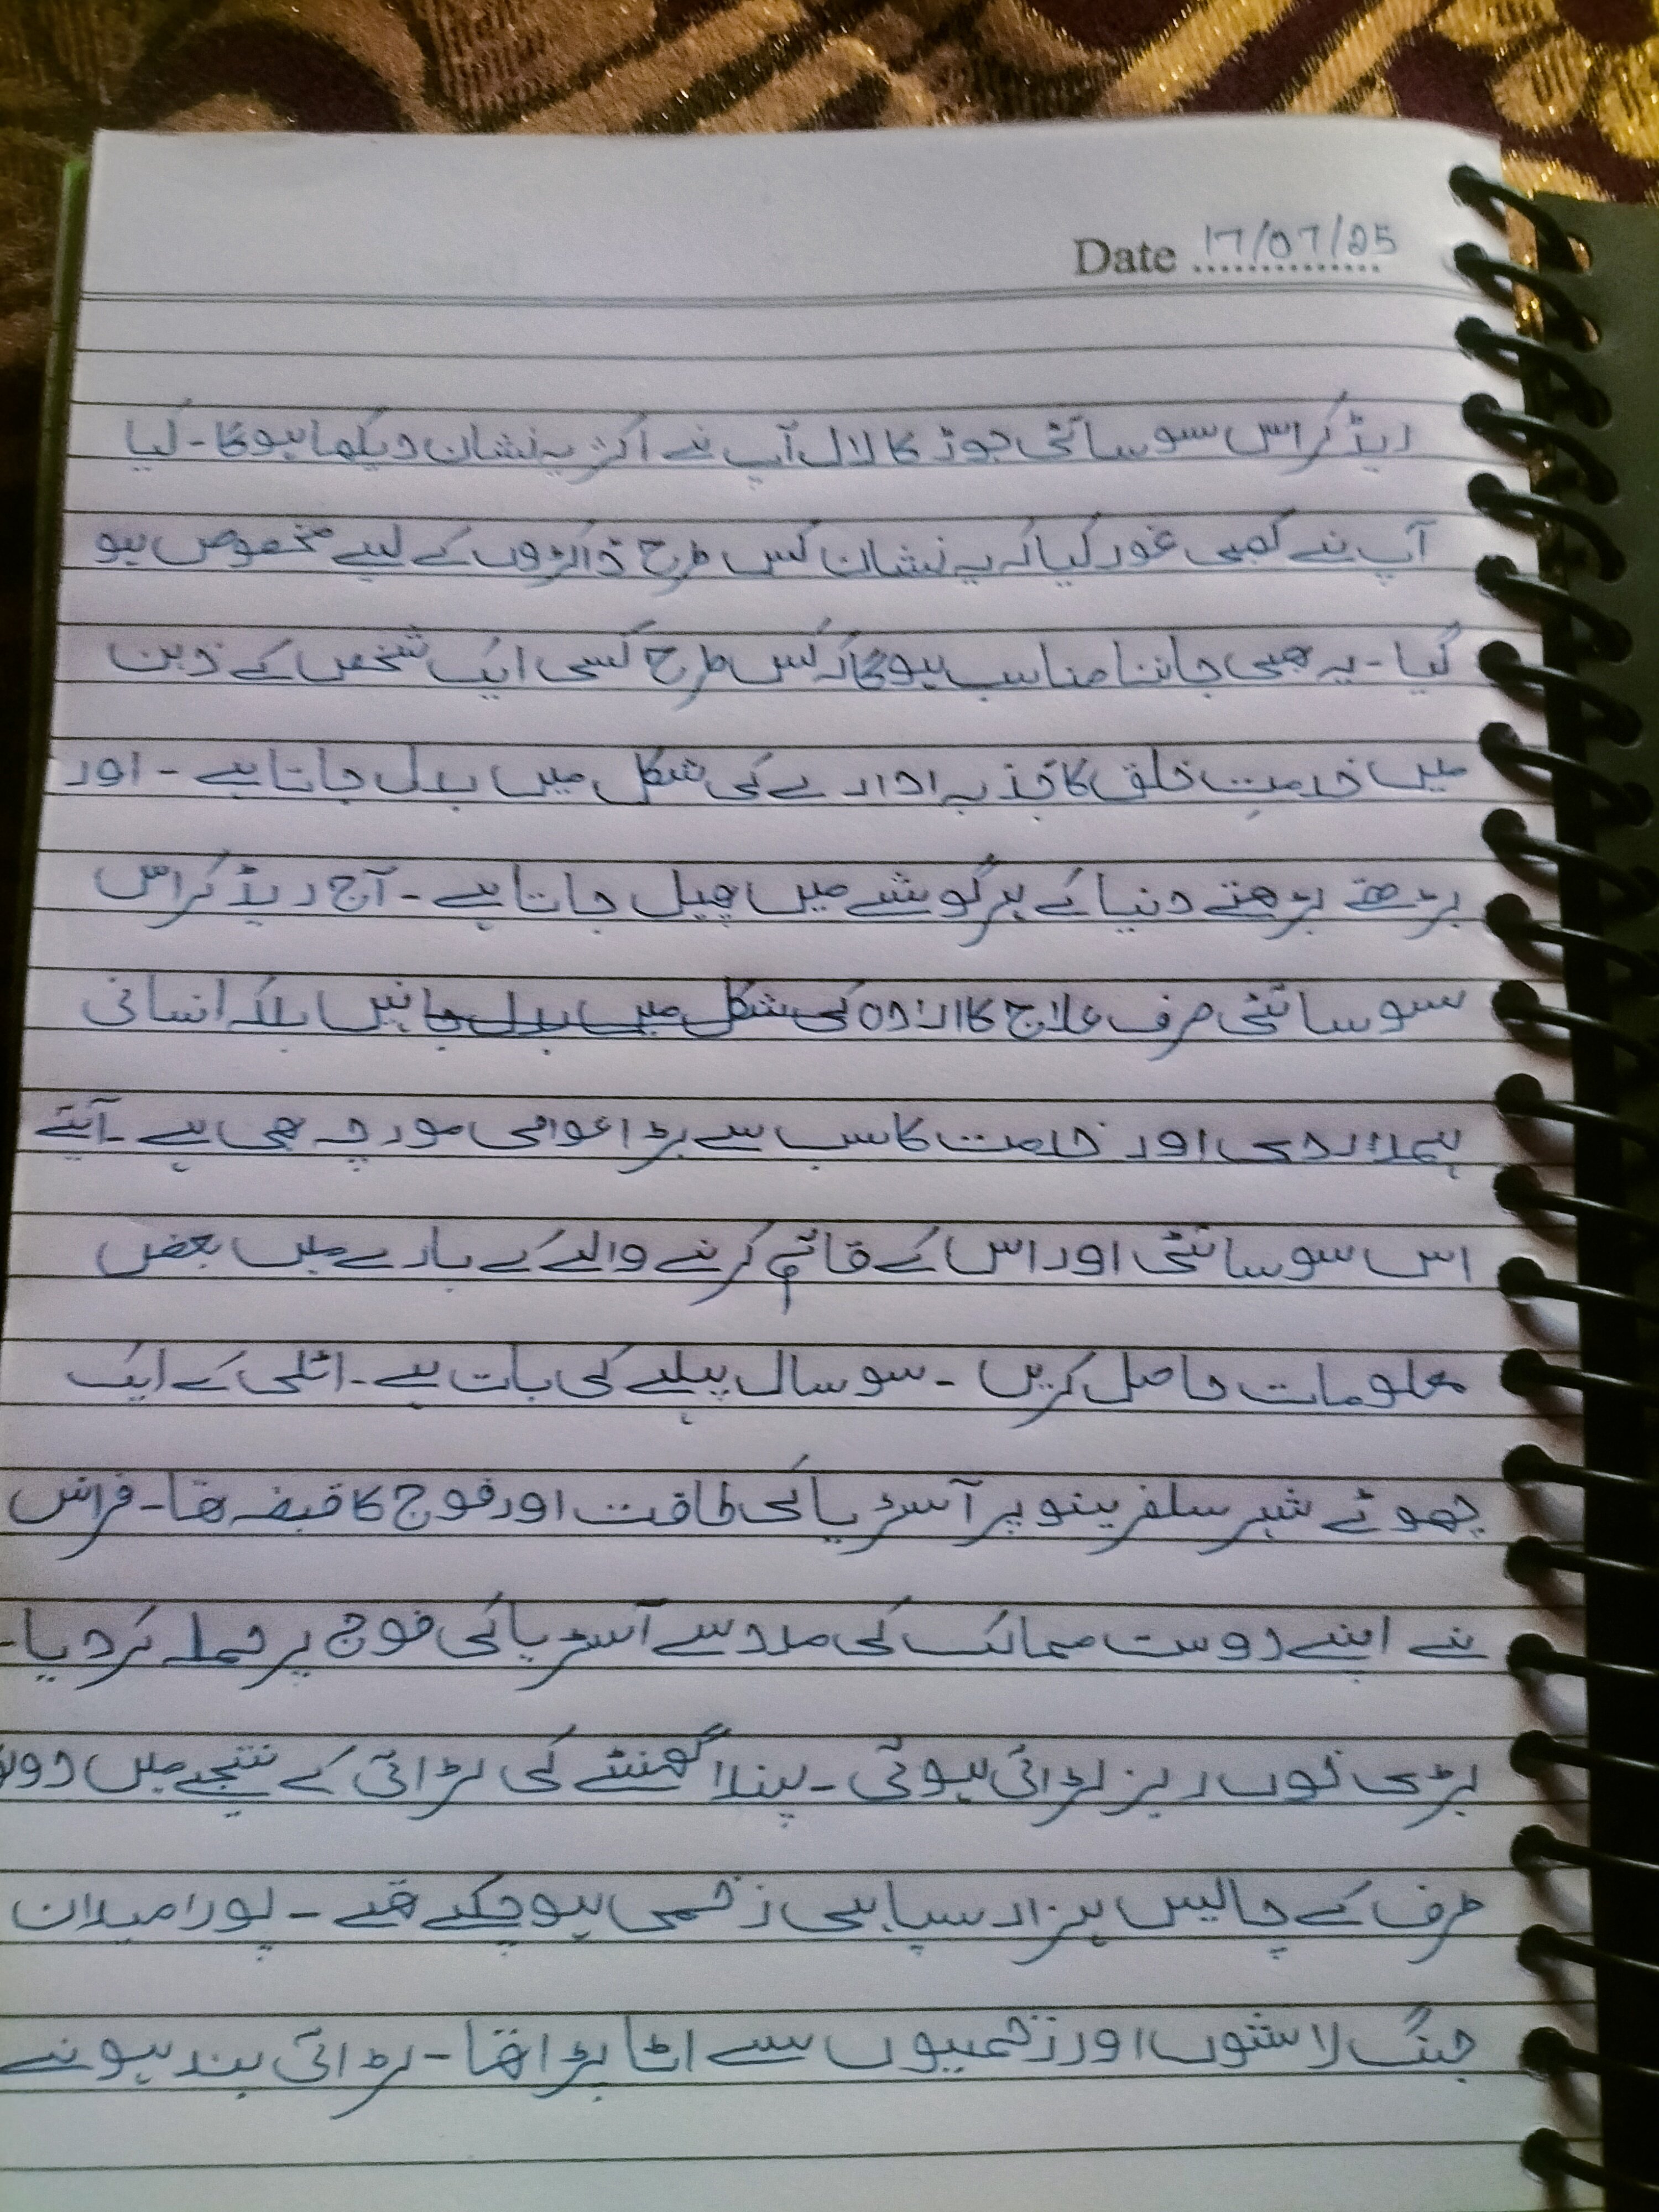 Date 17/07/25
ریڈ کراس سوسائٹی جوڑ کا لال آپ نے اکثر یہ نشان دیکھا ہوگا۔ کیا
آپ نے کبھی غور کیا کہ یہ نشان کس طرح ڈاکڑوں کے لیے مخصوص ہو
گیا۔ یہ بھی جاننا مناسب ہوگا کہ کس طرح کسی ایک شخص کے ذہن
میں خدمتِ خلق کا جذبہ ادارے کی شکل میں بدل جاتا ہے۔ اور
بڑھتے بڑھتے دنیا کے ہر گوشے میں پھیل جاتا ہے۔ آج ریڈ کراس
سوسائٹی صرف علاج کا ارادہ کی شکل میں بدل جا نہیں بلکہ انسانی
ہمدردی اور خدمت کا سب سے بڑا عوامی مورچہ بھی ہے۔ آیئے
اس سوسائٹی اور اس کے قائم کرنے والے کے بارے میں بعض
معلومات حاصل کریں۔ سو سال پہلے کی بات ہے۔ اٹلی کے ایک
چھوٹے شہر سلفرینو پر آسڑیا کی طاقت اور فوج کا قبضہ تھا۔ فرانس
نے اپنے دوست ممالک کی مدد سے آسڑیا کی فوج پر حملہ کر دیا۔
بڑی خوں ریز لڑائی ہوئی۔ پندرا گھنٹے کی لڑائی کے نتیجے میں
طرف کے چالیس ہزار سپاہی زخمی ہو چکے تھے۔ پورا میدان
جنگ لاشوں اور زخمیوں سے اٹا پڑا تھا۔ لڑائی بند ہونے